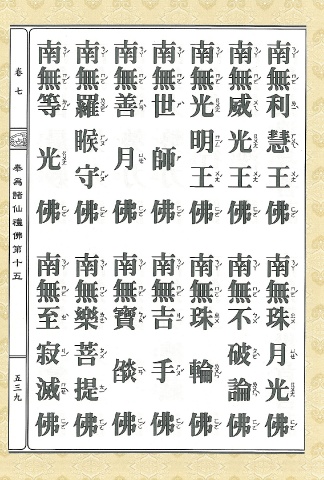 南無利慧王佛
南無珠月光佛
南無威光王佛
南無不破論佛
南無光明王佛
南無珠輪佛
南無世師佛
南無吉手佛
南無善月佛
南無寶燄佛
南無羅睺守佛
南無樂菩提佛
南無等光佛
南無至寂滅佛
卷七
奉為諸仙禮佛第十五
五三九